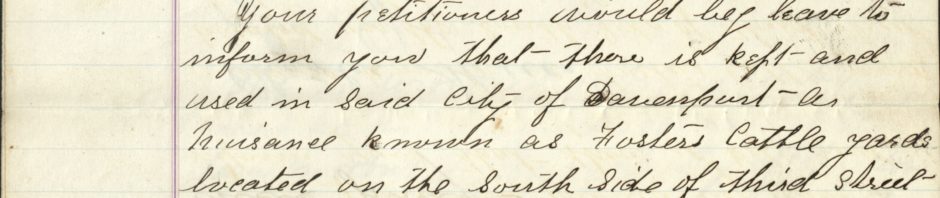 Your petitioners would beg leave to
inform you that there is kept and
used in said City of Davenport a
Nuisance known as Fosters Cattle yards
located on the South Side of third Street